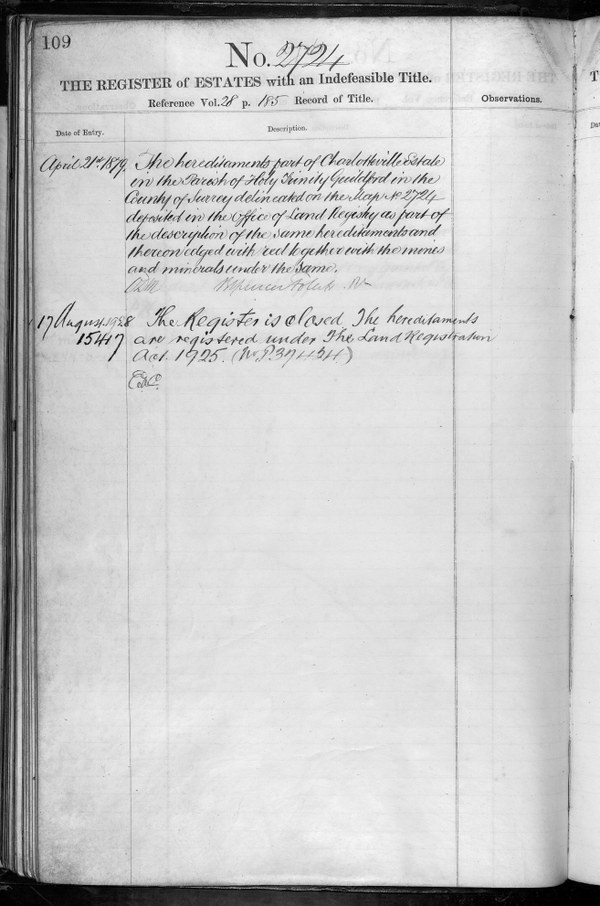 109
No. 2724
THE REGISTER of ESTATES with an Indefeasible Title.
Reference Vol. 28 p. 185 Record of Title.
Observations.
Date of Entry.
Description.
April 21st 1879.
The hereditaments part of Charlotteville Estate
in the Parish of Holy Trinity Guildford in the
County of Surrey delineated on the Map No 2724
deposited in the Office of Land Registry as part of
the description of the same hereditaments and
thereon edged with red together with the mines
and minerals under the same.
17 August 1928
15417
The Register is closed The hereditaments
are registered under The Land Registration
Act 1925. (No P.37434)